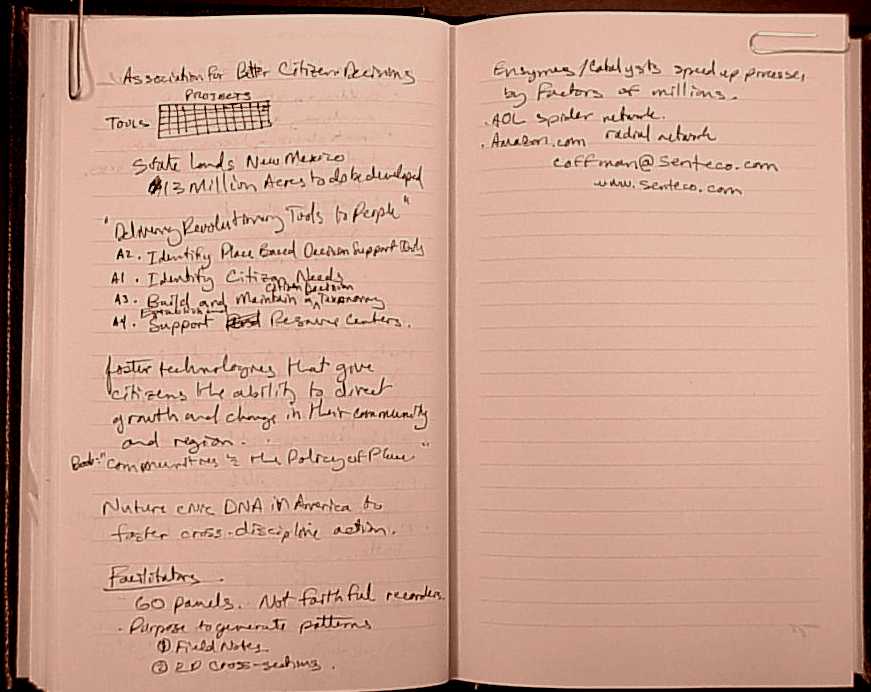 Association for Better Citizen Decisions
PROJECTS
TOOLS
State Lands New Mexico
13 Million Acres to be developed
"Delivering Revolutionary Tools to People"
A2. Identify Place Based Decision Support Tools
A1. Identify Citizen Needs
Citizen Decision
A3. Build and Maintain a ^ Taxonomy
Establish and
A4. Support Resource Centers.
foster technologies that give
citizens the ability to direct
growth and change in their community
and region.
Book: "Communities & the Policy of Place"
Nuture civic DNA in America to
foster cross-discipline action.
Facilitators.
60 panels. Not faithful recorders.
- Purpose to generate patterns
① Field Notes
② 2D Cross-sections.
Enzymes/Catalysts speed up processes
by factors of millions.
. AOL spider network.
. Amazon.com radial network
coffman@senteco.com
www.senteco.com